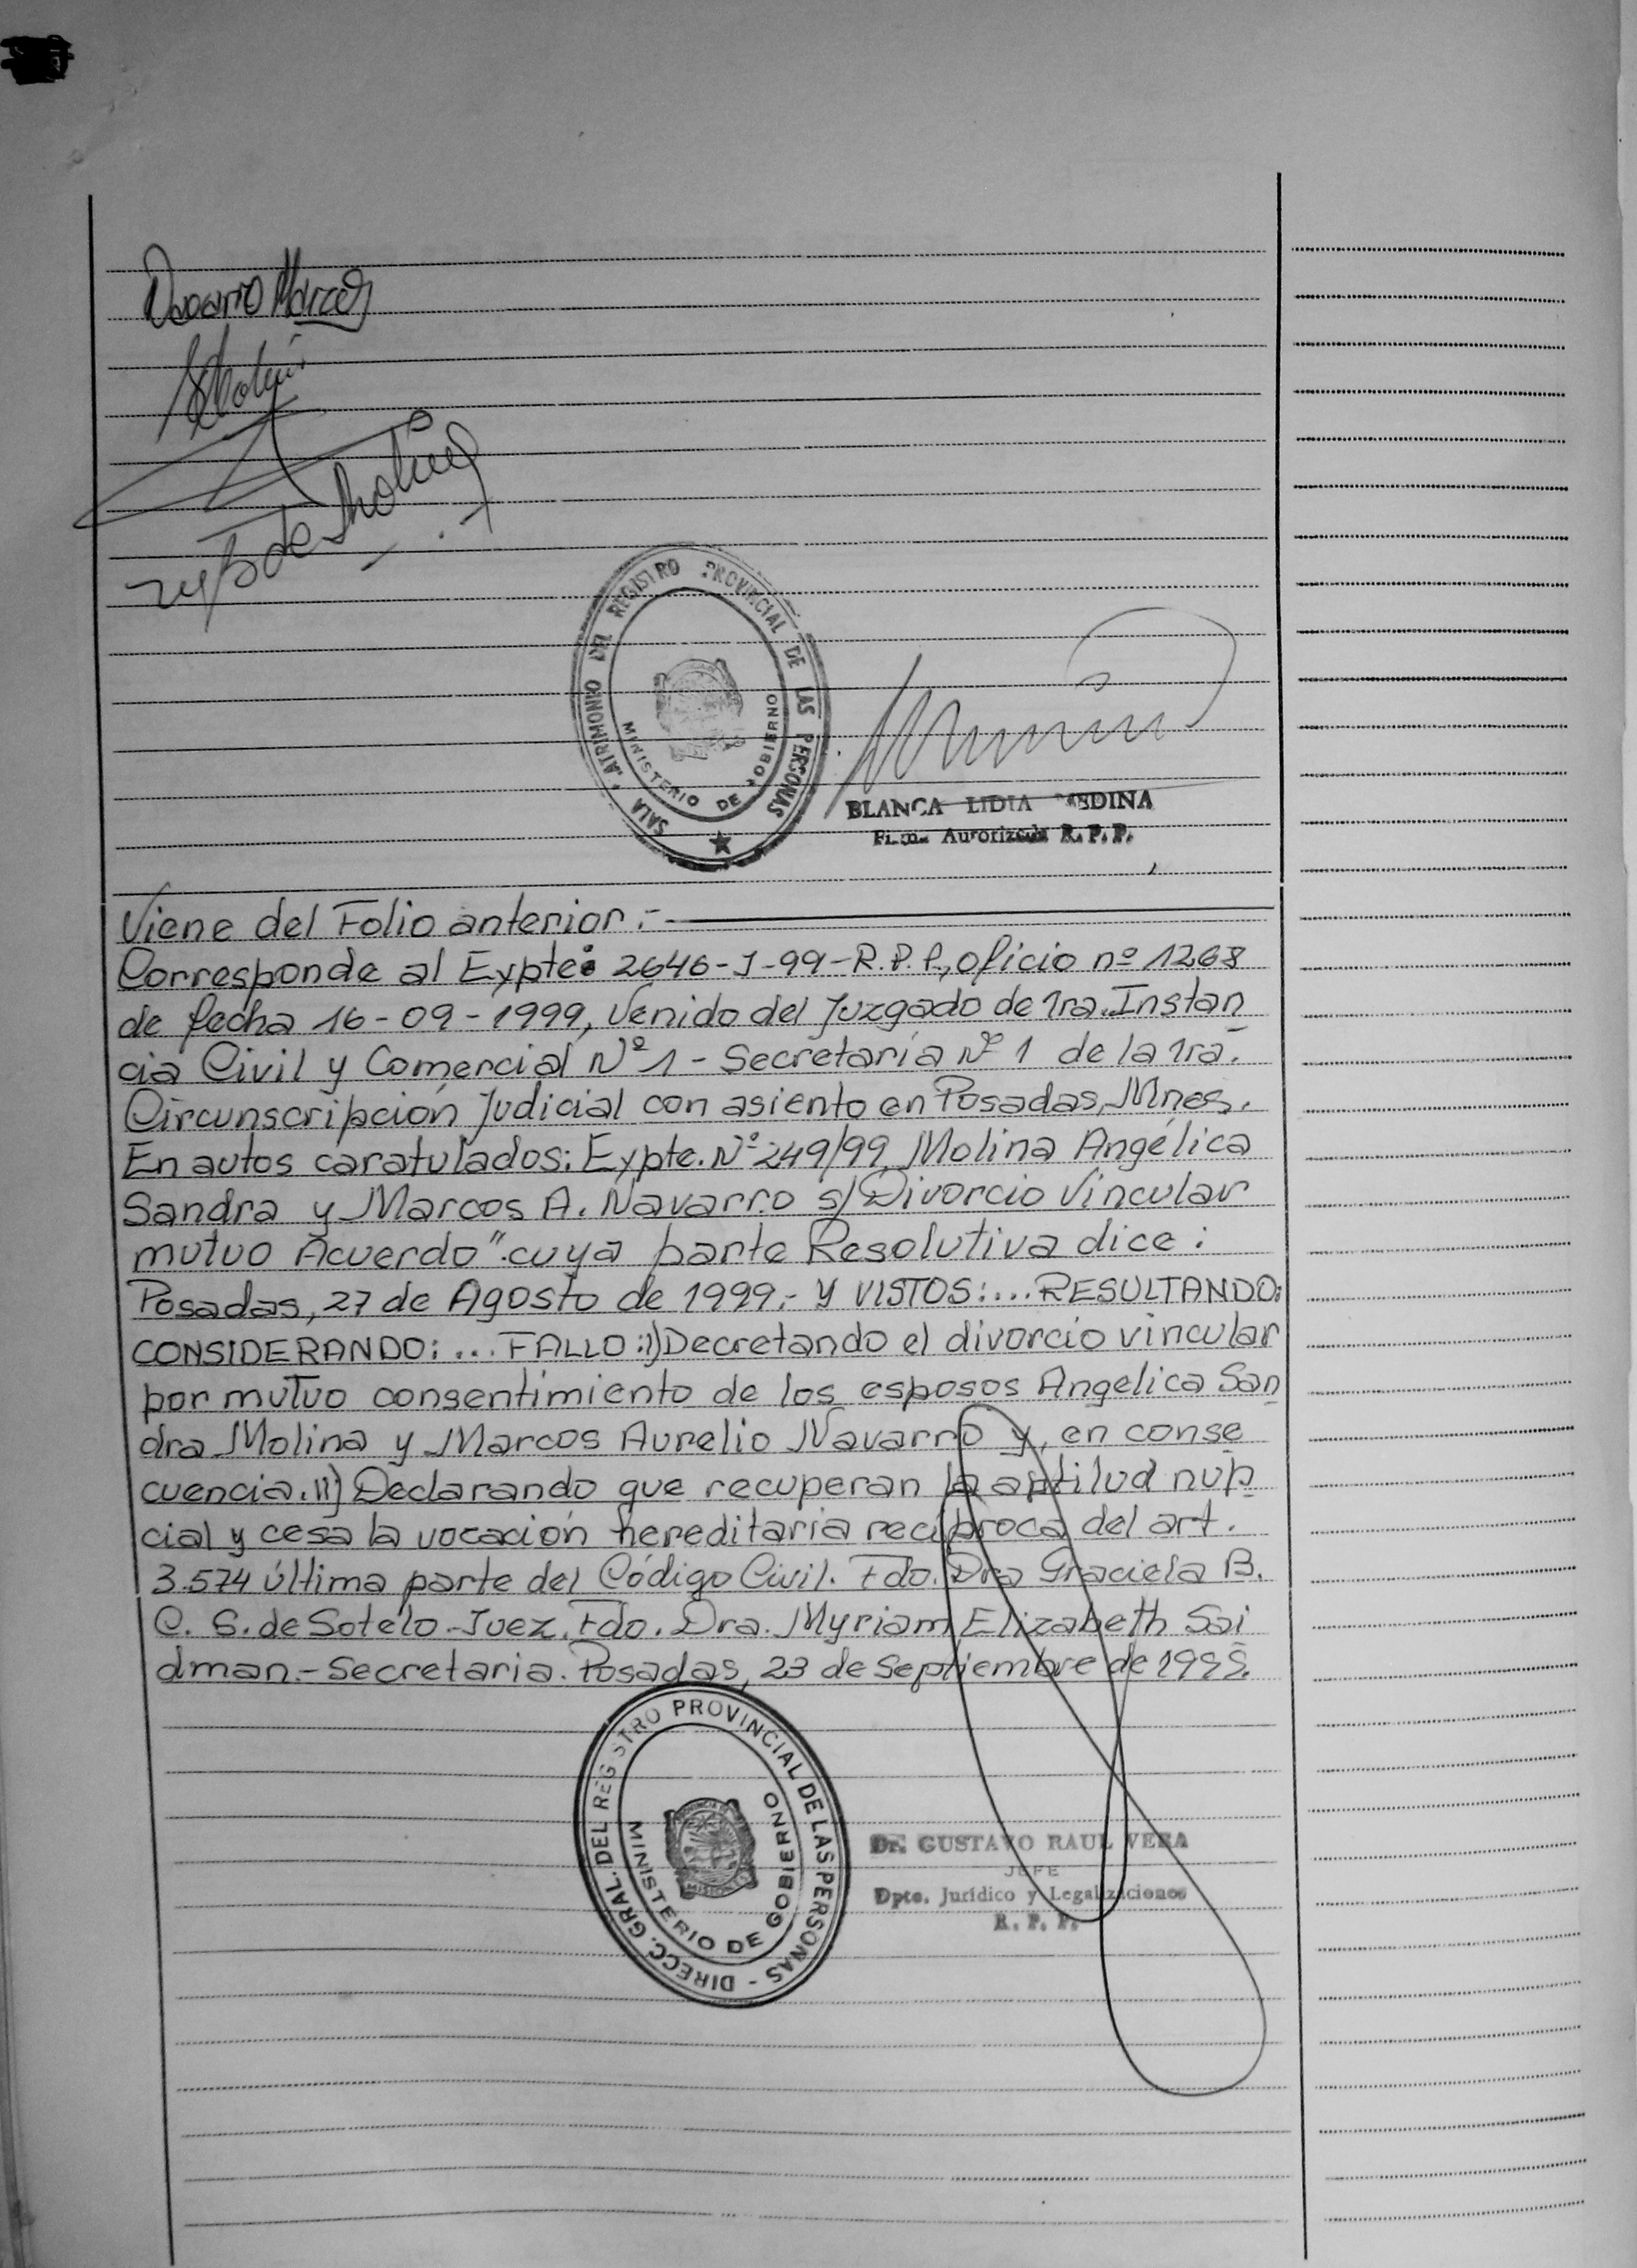 Navarro Marcos
de Molina
SALA MATRIMONIO DEL REGISTRO PROVINCIAL DE LAS PERSONAS
MINISTERIO DE GOBIERNO
BLANCA LIDIA MEDINA
Firma Autorizada R. P. P.
Viene del Folio anterior.-
Corresponde al Expte: 2646-J-99-R.P.P., oficio nº 1268
de fecha 16-09-1999, Venido del Juzgado de 1ra. Instan
cia Civil y Comercial Nº 1 - Secretaría Nº 1 de la 1ra.
Circunscripción Judicial con asiento en Posadas, Mnes.
En autos caratulados: Expte. Nº 249/99 Molina Angélica
Sandra y Marcos A. Navarro s/Divorcio Vincular
mutuo Acuerdo". cuya parte Resolutiva dice:
Posadas, 27 de Agosto de 1999.- Y VISTOS:...RESULTANDO:
CONSIDERANDO: ... FALLO: I) Decretando el divorcio vincular
por mutuo consentimiento de los esposos Angelica San
dra Molina y Marcos Aurelio Navarro y, en conse
cuencia. II) Declarando que recuperan la aptitud nup
cial y cesa la vocación hereditaria recíproca del art.
3.574 última parte del Código Civil. Fdo. Dra Graciela B.
C. S. de Sotelo.-Juez. Fdo. Dra. Myriam Elizabeth Sai
dman.- Secretaria. Posadas, 23 de Septiembre de 1999.
DIRECC. GRAL. DEL REGISTRO PROVINCIAL DE LAS PERSONAS -
MINISTERIO DE GOBIERNO
Dr. GUSTAVO RAUL VERA
JEFE
Dpto. Jurídico y Legalizaciones
R. P. P.